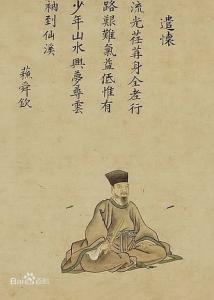 遣懷
流光荏苒身全老行
路艱難氣益低惟有
少年山水興夢尋雲
衲到仙溪
蘇舜欽
Baidu百科